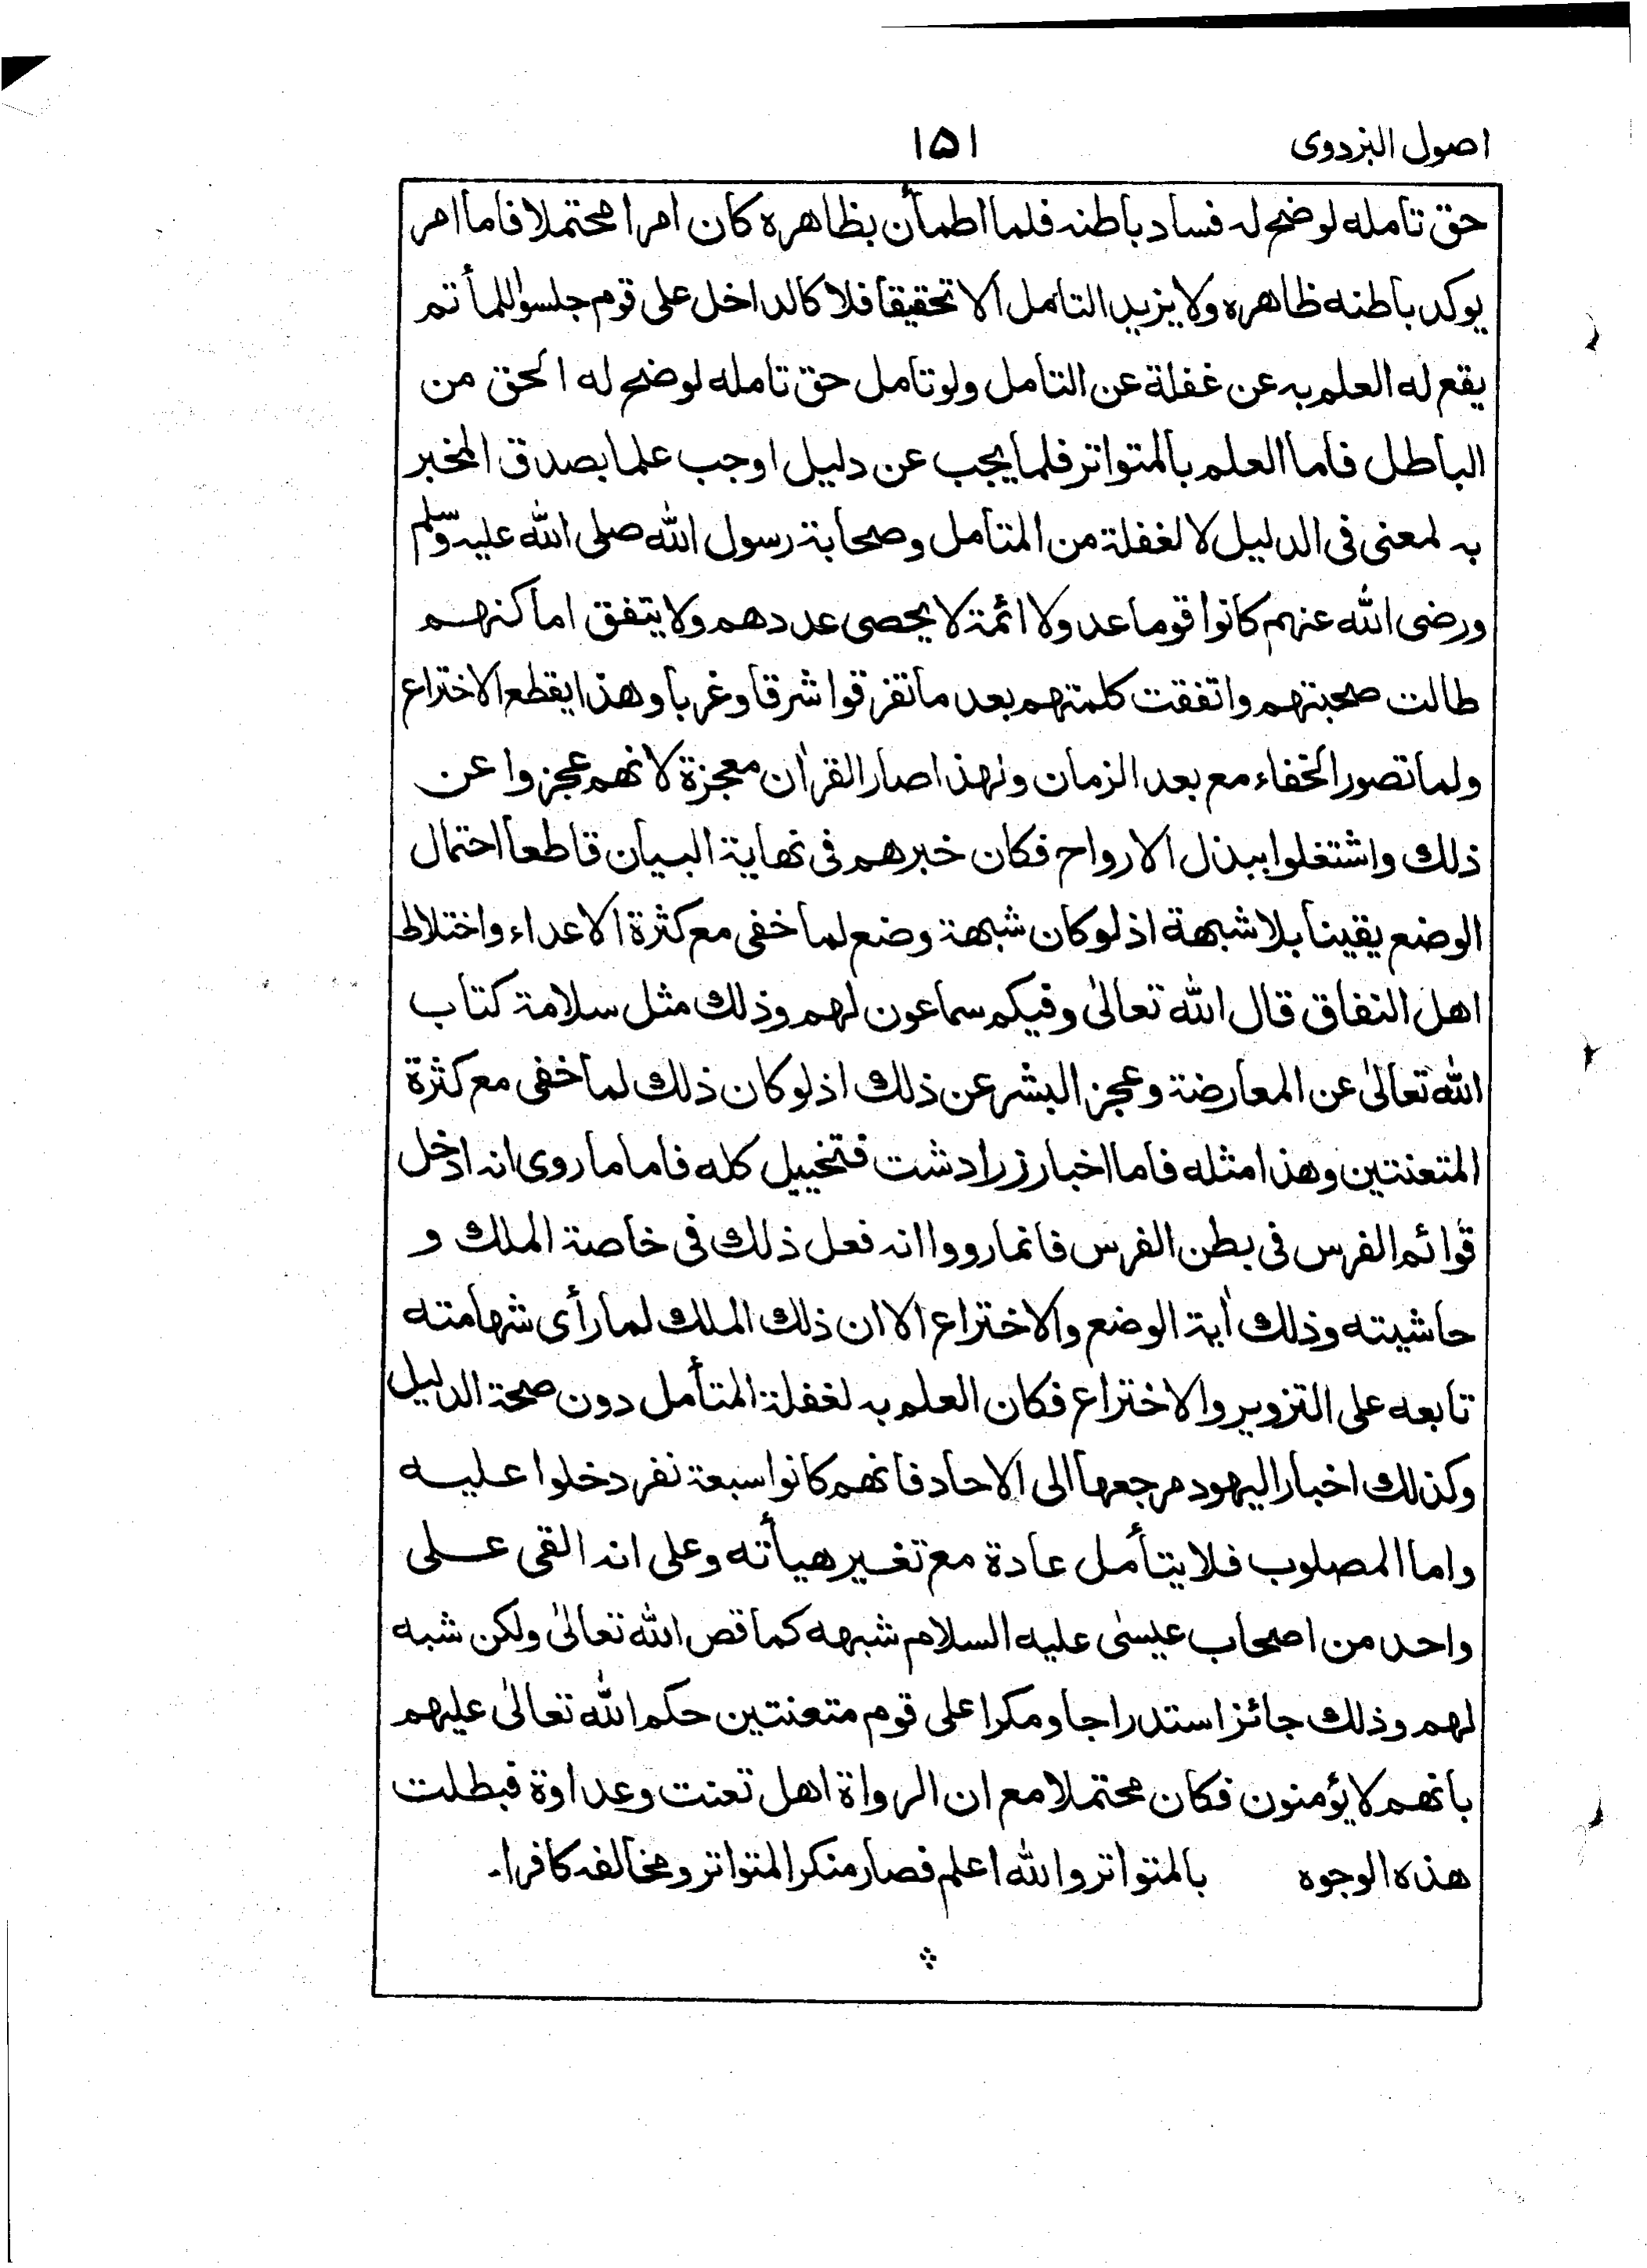 اصول البزدوی ۱۵۱
حق تامله لوضح له فساد باطنه فلما اطمأن بظاهره كان امرا محتملا فاما امر
يوكد باطنه ظاهره ولا يزيد التامل الا تحقيقا فلا كالداخل على قوم جلسوا للمأتم
يقع له العلم به عن غفلة عن التامل ولو تامل حق تامله لوضح له الحق من
الباطل فاما العلم بالمتواتر فلما يجب عن دليل اوجب علما بصدق المخبر
به لمعنى فى الدليل لا لغفلة من المتامل وصحابة رسول الله صلى الله عليه وسلم
ورضى الله عنهم كانوا قوما عدولا ائمة لا يحصى عددهم ولا يتفق اماكنهم
طالت صحبتهم واتفقت كلمتهم بعد ما تفرقوا شرقا وغربا وهذا يقطع الاختراع
ولما تصور الخفاء مع بعد الزمان ولهذا صار القراٰن معجزة لانهم عجزوا عن
ذلك واشتغلوا ببذل الارواح فكان خبرهم فى نهاية البيان قاطعا احتمال
الوضع يقينا بلا شبهة اذ لو كان شبهة وضع لما خفى مع كثرة الاعداء واختلاط
اهل النفاق قال الله تعالىٰ وفيكم سماعون لهم وذلك مثل سلامة كتاب
الله تعالىٰ عن المعارضة وعجز البشر عن ذلك اذ لو كان ذلك لما خفى مع كثرة
المتعنتين وهذا مثله فاما اخبار زرادشت فتخييل كله فاما ما روى انه ادخل
قوائم الفرس فى بطن الفرس فانما رووا انه فعل ذلك فى خاصة الملك و
حاشيته وذلك اٰية الوضع والاختراع الا ان ذلك الملك لما رأى شهامته
تابعه على التزوير والاختراع فكان العلم به لغفلة المتأمل دون صحة الدليل
وكذلك اخبار اليهود مرجعها الى الاحاد فانهم كانوا سبعة نفر دخلوا عليه
واما المصلوب فلا يتأمل عادة مع تغير هيأته وعلى انه القى على
واحد من اصحاب عيسىٰ عليه السلام شبهه كما قص الله تعالىٰ ولكن شبه
لهم وذلك جائز استدراجا ومكرا على قوم متعنتين حكم الله تعالىٰ عليهم
بانهم لا يؤمنون فكان محتملا مع ان الرواة اهل تعنت وعداوة فبطلت
هذه الوجوه بالمتواتر والله اعلم فصار منكر المتواتر ومخالفه كافرا۔